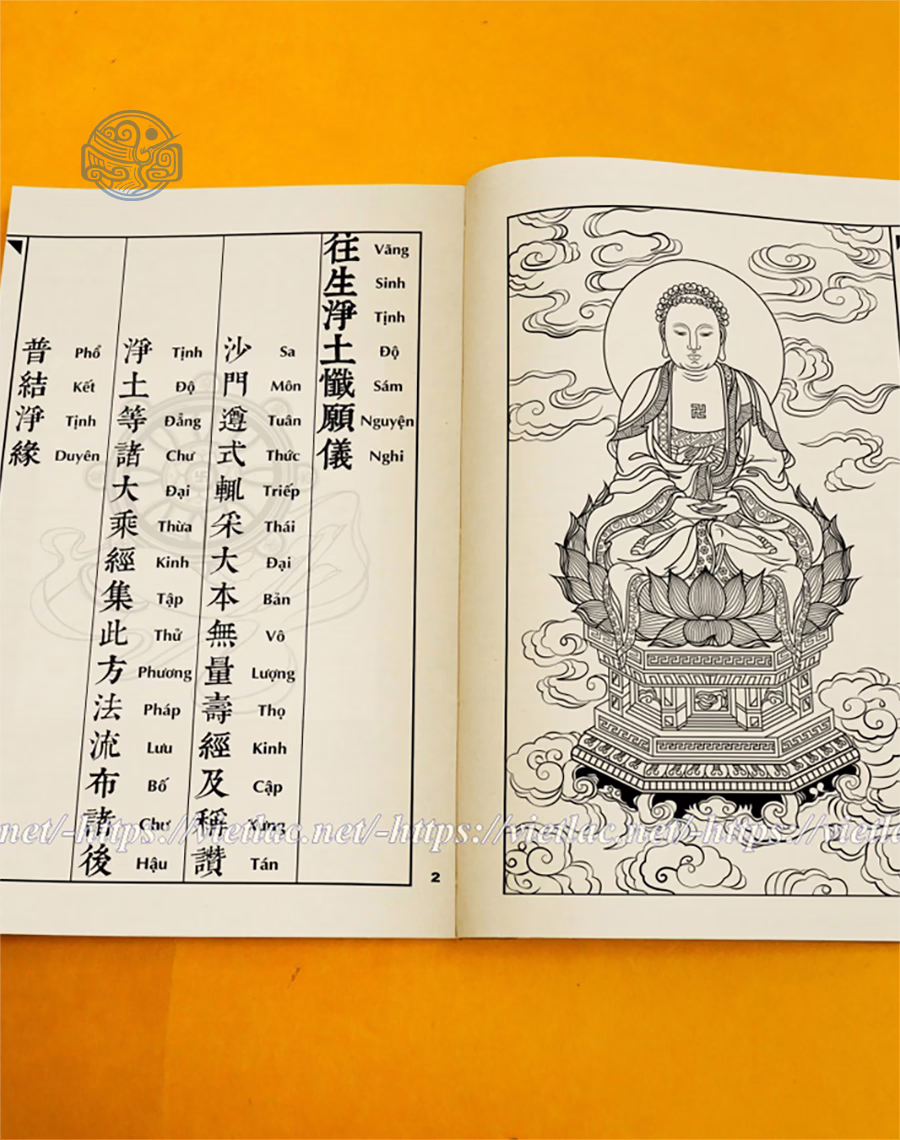 往生淨土懺願儀
Vãng Sinh Tịnh Độ Sám Nguyện Nghi
沙門遵式輒采大本無量壽經及稱讚
Sa Môn Tuân Thức Triếp Thái Đại Bản Vô Lượng Thọ Kinh Cập Xưng Tán
淨土等諸大乘經集此方法流布諸後
Tịnh Độ Đẳng Chư Đại Thừa Kinh Tập Thử Phương Pháp Lưu Bố Chư Hậu
普結淨緣
Phổ Kết Tịnh Duyên
2
.net/-https://vietlac.net/-https://vietlac.net/-https://vietla